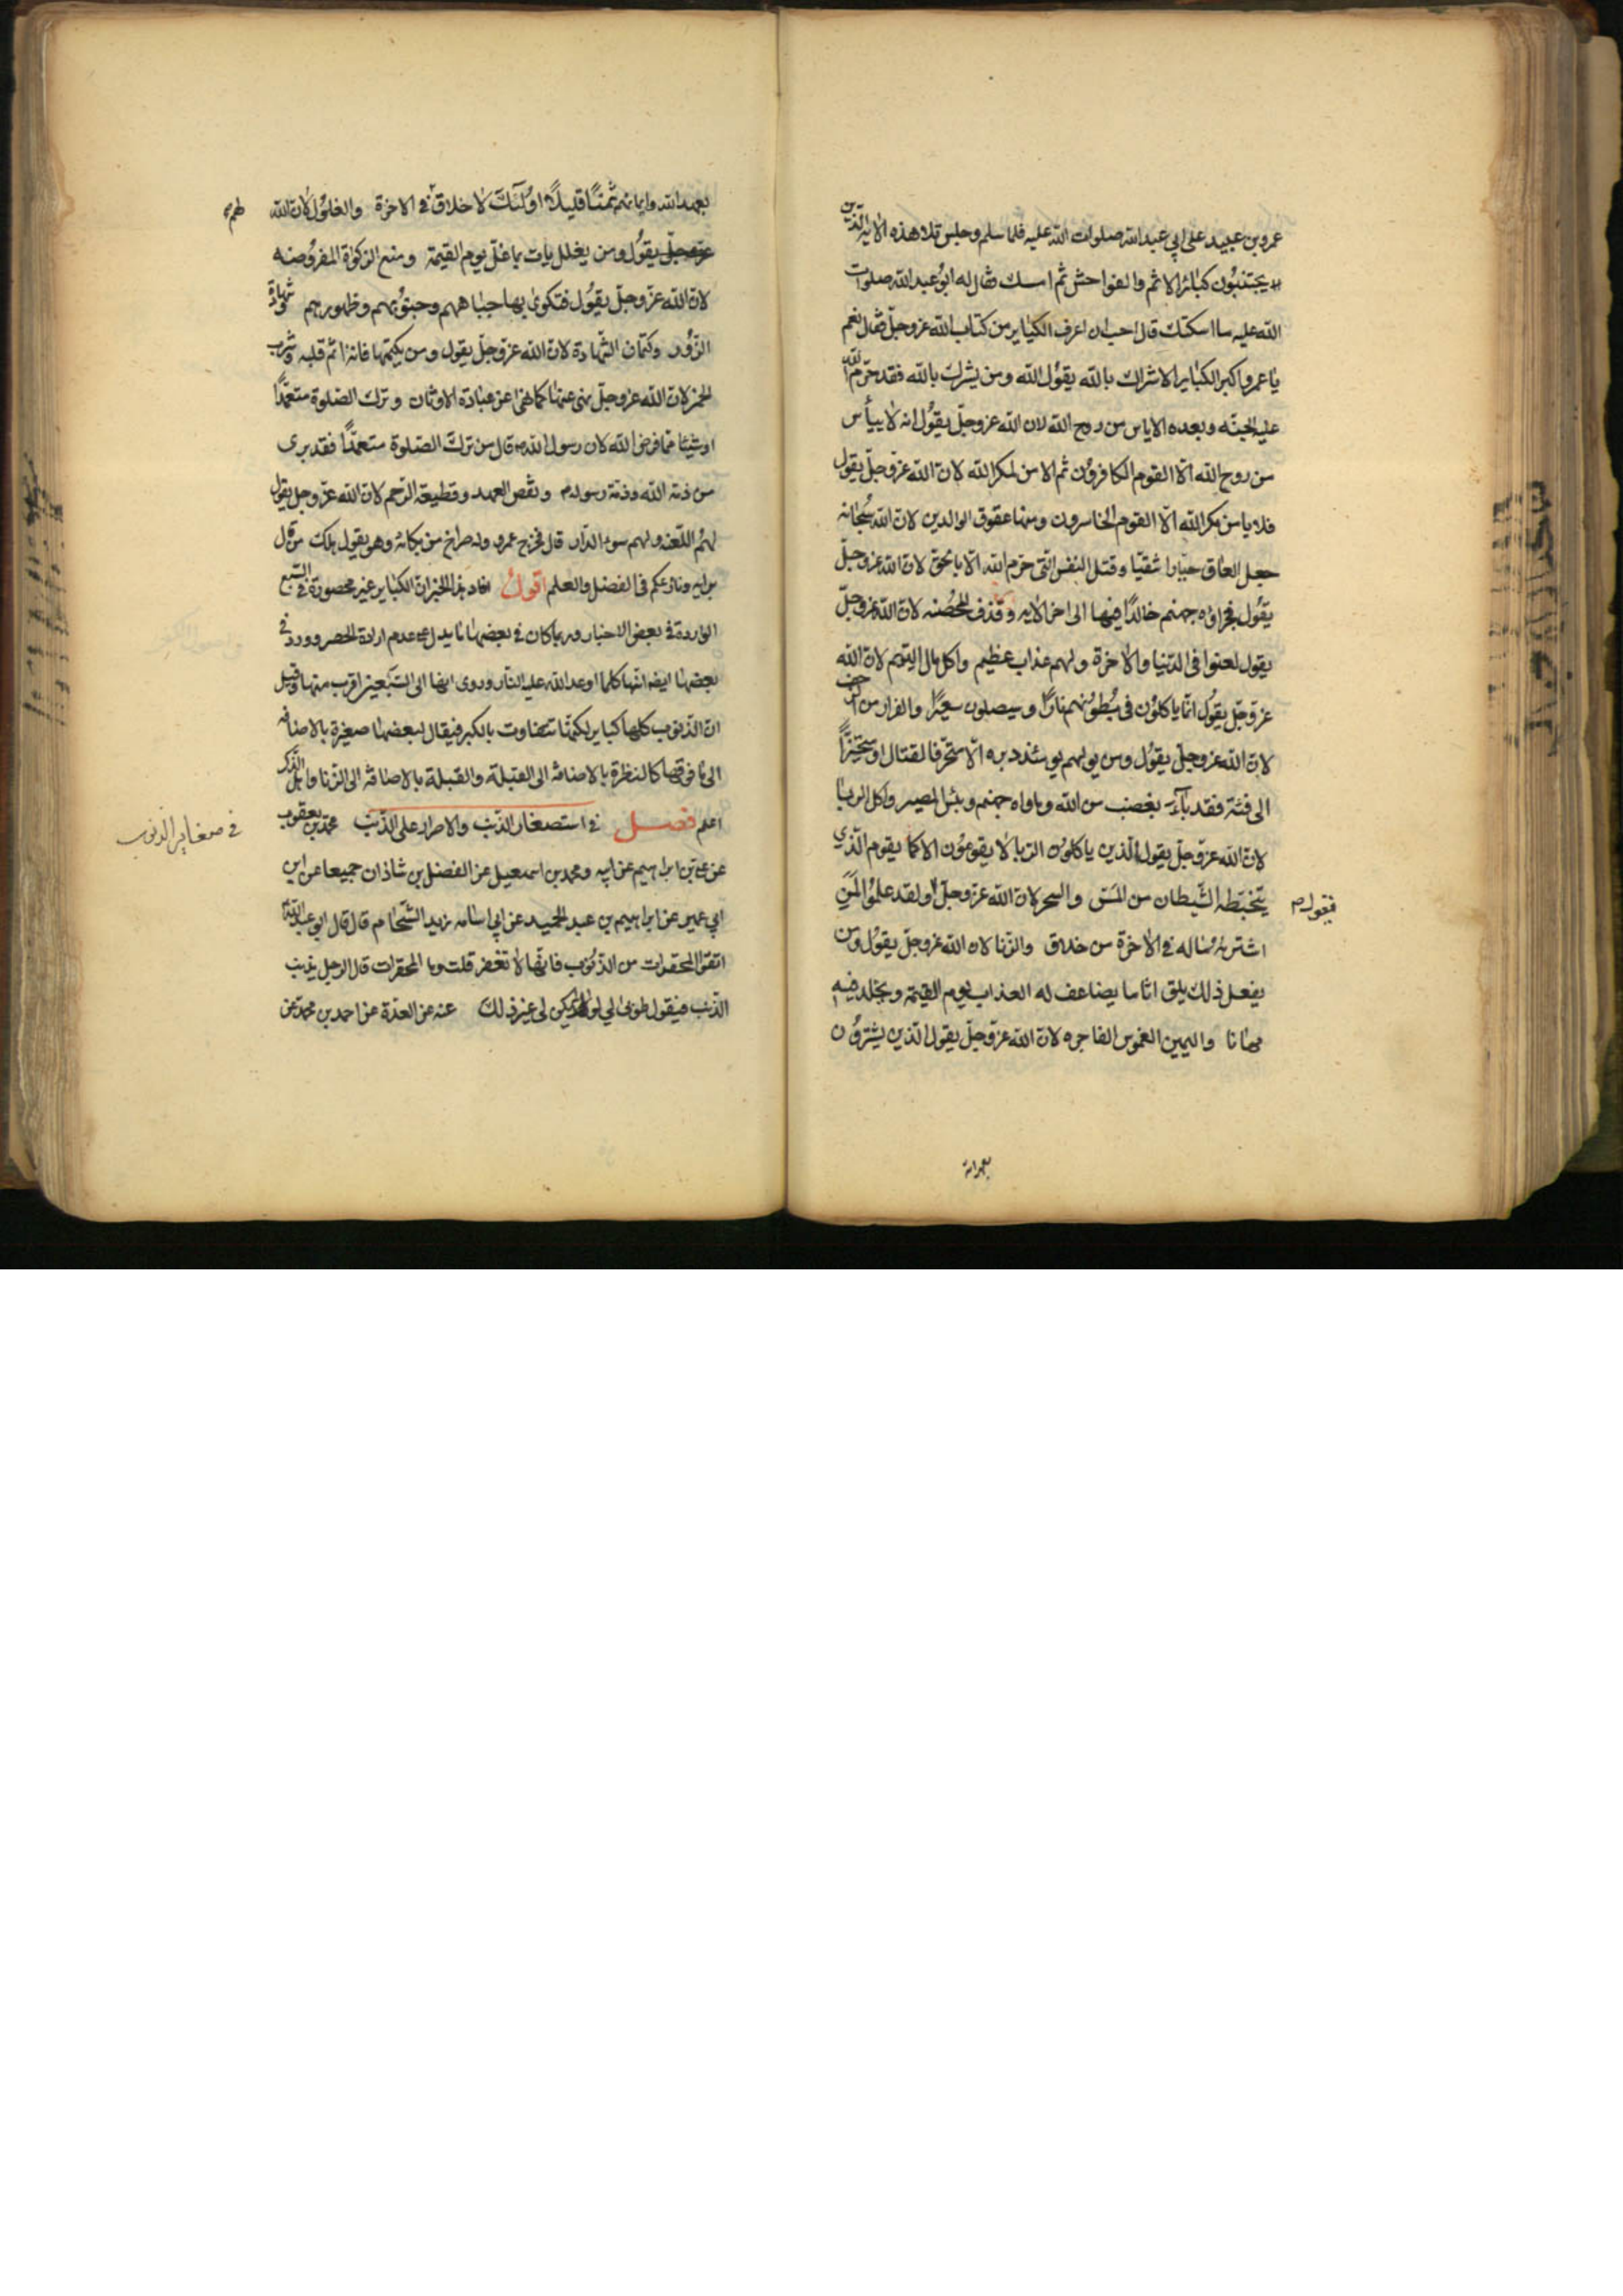 عمرو بن عبيد على ابي عبد الله صلوات الله عليه فلما سلم وجلس تلا هذه الاية الذين
يجتنبون كبائر الاثم والفواحش ثم امسك فقال له ابو عبد الله صلوات
الله عليه ما اسكتك قال احب ان اعرف الكباير من كتاب الله عز وجل فقال نعم
يا عمرو اكبر الكباير الاشراك بالله يقول الله ومن يشرك بالله فقد حرم الله
عليه الجنة وبعده الاياس من روح الله لان الله عز وجل يقول انه لا ييأس
من روح الله الا القوم الكافرون ثم الامن لمكر الله لان الله عز وجل يقول
فلا يامن مكر الله الا القوم الخاسرون ومنها عقوق الوالدين لان الله سبحانه
جعل العاق جبارا شقيا وقتل النفس التى حرم الله الا بالحق لان الله عز وجل
يقول فجزاؤه جهنم خالدا فيها الى اخر الايه وقذف المحصنه لان الله عز وجل
يقول لعنوا فى الدنيا والاخرة ولهم عذاب عظيم واكل مال اليتيم لان الله
عز وجل يقول انما ياكلون فى بطونهم نارا وسيصلون سعيرا والفرار من الزحف
لان الله عز وجل يقول ومن يولهم يومئذ دبره الا متحرفا لقتال او متحيزا
الى فئة فقد بآء بغضب من الله وماواه جهنم وبئس المصير واكل الربا
لان الله عز وجل يقول الذين ياكلون الربا لا يقومون الا كما يقوم الذي
يتخبطه الشيطان من المس والسحر لان الله عز وجل ولقد علموا لمن
فيقول م
اشتريه ماله في الاخرة من خلاق والزنا لان الله عز وجل يقول ومن
يفعل ذلك يلق اثاما يضاعف له العذاب يوم القيمة ويخلد فيه
مهانا واليمين الغموس الفاجره لان الله عز وجل يقول الذين يشترون
بعهد الله
بعهد الله وايمانهم ثمنا قليلا اولئك لا خلاق في الاخرة والغلول لان الله
لهم
عز وجل يقول ومن يغلل يات بما غل يوم القيمة ومنع الزكوة المفروضه
لان الله عز وجل يقول فتكوى بها جباههم وجنوبهم وظهورهم شهادة
الزور وكتمان الشهادة لان الله عز وجل يقول ومن يكتمها فانه اثم قلبه وشرب
الخمر لان الله عز وجل نهى عنها كما نهى عن عبادة الاوثان وترك الصلوة متعمدا
او شيئا مما فرض الله لان رسول الله ص قال من ترك الصلوة متعمدا فقد برى
من ذمة الله وذمة رسوله م ونقص العهد وقطيعة الرحم لان الله عز وجل يقول
لهم اللعنه ولهم سوء الدار قال فخرج عمرو وله صراخ من بكائه وهو يقول هلك من قال
برايه ونازعكم فى الفضل والعلم اقول افاد هذا الخبر ان الكباير غير محصورة في السبع
الواردة في بعض الاخبار وربما كان في بعضها ما يدل على عدم ارادة الحصر وورد في
بعضها ايضا انها كلما اوعد الله عليه النار وروى ايضا الى السبعين اقرب منها وقيل
ان الذنوب كلها كباير لكنها تتفاوت بالكبر فيقال لبعضها صغيرة بالاضافه
الى ما فوقها كالنظرة بالاضافة الى القبلة والقبلة بالاضافة الى الزنا
اعلم فصل في استصغار الذنب والاصرار على الذنب محمد بن يعقوب
في صغاير الذنوب
عن علي بن ابراهيم عن ابيه ومحمد بن اسمعيل عن الفضل بن شاذان جميعا عن ابن
ابي عمير عن ابراهيم بن عبد الحميد عن ابي اسامه زيد الشحام قال قال ابو عبد الله
اتقوا المحقرات من الذنوب فانها لا تغفر قلت وما المحقرات قال الرجل يذنب
الذنب فيقول طوبى لي لو لم يكن لى غير ذلك عنه عن العدة عن احمد بن محمد عن